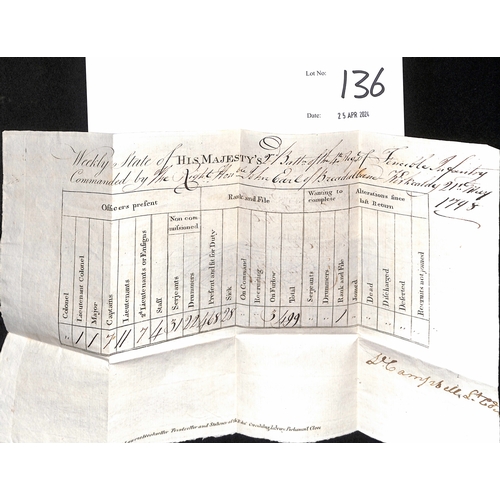 Lot No: 136
Date: 25 APR 2024
Weekly State of HIS MAJESTY'S 2d Battn of the 4th Regt of Fencible Infantry
Commanded by The Right Honble John Earl of Breadalbane Kirkcaldy 21st May
1798
Officers present
Non com
missioned
Rank and File
Wanting to
complete
Alterations since
last Return
Colonel
Lieutenant Colonel
Major
Captains
Lieutenants
2d Lieutenants or Ensigns
Staff
Serjeants
Drummers
Present and fit for Duty
Sick
On Command
Recruiting
On Furlow
Total
Serjeants
Drummers
Rank and File
Joined
Dead
Discharged
Deserted
Recruits not joined
" 1 1 7 11 7 4 31 22 468 28 3 499 " " 1 " " " " "
Campbell Lt Col